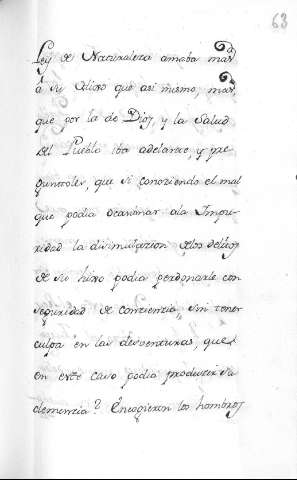 63
Ley de Naturaleza amaba mas
á su Hixo que asi mismo, mas
que por la de Dios, y la Salud
del Pueblo iba adelante, y pre
guntoles, que si conoziendo el mal
que podia ocasionar ala Impu-
nidad la disimulazion delos delitos
de su hixo podia perdonarle con
seguridad de conzienzia, sin tener
culpa en las desventuras, que
en este caso podia produzir sa
clemenzia? Encogieron los hombros